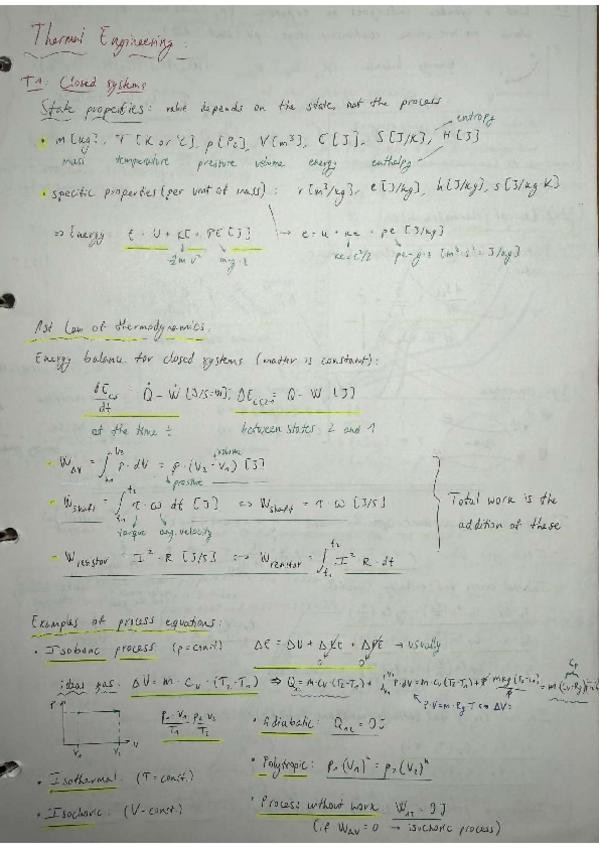 Thermal Engineering:
T1: Closed systems
State properties: value depends on the state, not the process
entropy
• m [kg], T [K or °C], p [Pa], V [m³], E [J], S [J/K], H [J]
mass temperature pressure volume energy enthalpy
• specific properties (per unit of mass): v [m³/kg], e [J/kg], h [J/kg], s [J/kg K]
⇒ Energy: E = U + KE + PE [J] → e = u + ke + pe [J/kg]
½ m v² m g z ke = c²/2 pe = g·z [m²·s⁻² = J/kg]
1st Law of thermodynamics:
Energy balance for closed systems (matter is constant):
dE/dt = Q̇ - Ẇ [J/s=W]; ΔE = Q - W [J]
at the time t between states 2 and 1
volume
• W_ΔV = ∫ p · dV = p · (V₂ - V₁) [J]
pressure
• W_shaft = ∫ τ · ω dt [J] ⇔ Ẇ_shaft = τ · ω [J/s]
torque ang. velocity
Total work is the
addition of these
• Ẇ_resistor = I² · R [J/s] ⇔ W_resistor = ∫ I² R · dt
Examples of process equations:
• Isobaric process (p=const) ΔE = ΔU + ΔKE + ΔPE → usually
0 0
ideal gas: ΔU = m · c_v · (T₂-T₁) ⇒ Q = m·c_v·(T₂-T₁) + ∫ P·dV = m·c_v·(T₂-T₁) +
P·V = m·Rg T ⇔ ΔV =
P V₁ V₂ V
p₁ V₁/T₁ = p₂ V₂/T₂ • Adiabatic: Q₁₂ = 0J
• Polytropic: p₁(V₁)ⁿ = p₂(V₂)ⁿ
• Isothermal: (T=const.)
• Process without work: W₁₂ = 0J
• Isochoric: (V-const.)
(if W_ΔV = 0 → isochoric process)